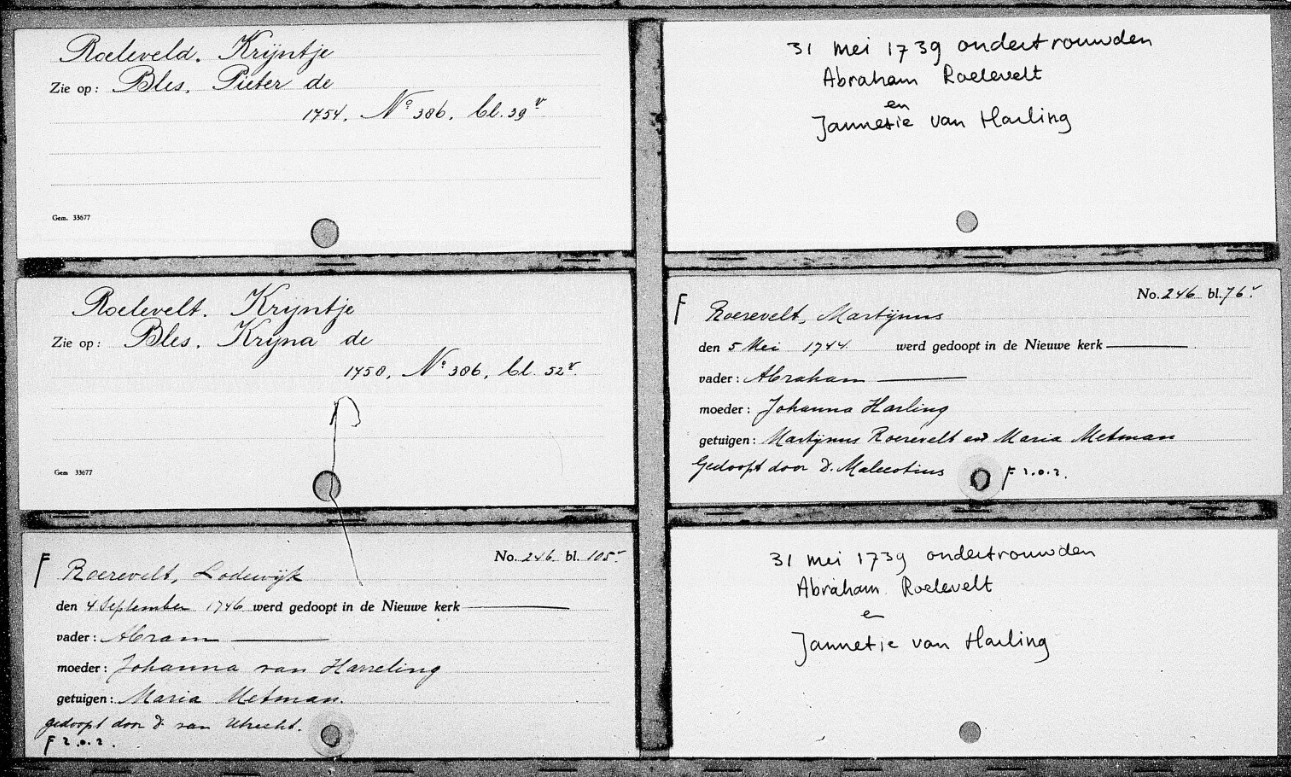 Roeleveld. Krijntje
Zie op: Bles. Pieter de
1754. No 386. bl. 39v
Gem. 33677
Roelevelt. Krijntje
Zie op: Bles. Krijna de
1750. No 386. bl. 52v.
Gem 33677
F
No. 246 bl. 105v
Roerevelt, Lodewijk
den 4 September 1746 werd gedoopt in de Nieuwe kerk
vader: Abram
moeder: Johanna van Harreling
getuigen: Maria Metman.
gedoopt door D. van Utrecht.
F 2.0.2.
31 mei 1739 ondertrouwden
Abraham Roelevelt
en
Jannetie van Harling
F
No. 246 bl. 76v
Roerevelt, Martijnus
den 5 Mei 1744 werd gedoopt in de Nieuwe kerk
vader: Abraham
moeder: Johanna Harling
getuigen: Martijnus Roerevelt en Maria Metman
Gedoopt door D. Malecotius F 2.0.2.
31 mei 1739 ondertrouwden
Abraham Roelevelt
en
Jannetie van Harling